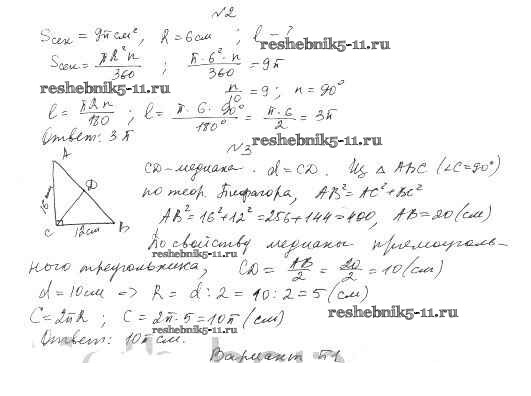 №2
Sсек = 9π см², R = 6 см ; l - ?
reshebnik5-11.ru
Sсек = πR²n/360 ; π·6²·n/360 = 9π
reshebnik5-11.ru
n/10 = 9 ; n = 90°
l = πRn/180 ; l = π·6·90°/180° = π·6/2 = 3π
Ответ: 3π
reshebnik5-11.ru
№3
A
CD-медиана. d = CD. Из △ABC (∠C=90°)
D
по теор. Пифагора, AB² = AC² + BC²
16 см
AB² = 16² + 12² = 256 + 144 = 400, AB = 20 (см)
C 12см B
По свойству медианы прямоуголь-
reshebnik5-11.ru
ного треугольника, CD = AB/2 = 20/2 = 10 (см)
d = 10 см => R = d : 2 = 10 : 2 = 5 (см)
C = 2πR ; C = 2π·5 = 10π (см)
reshebnik5-11.ru
reshebnik5-11.ru
Ответ: 10π см.
Вариант П1